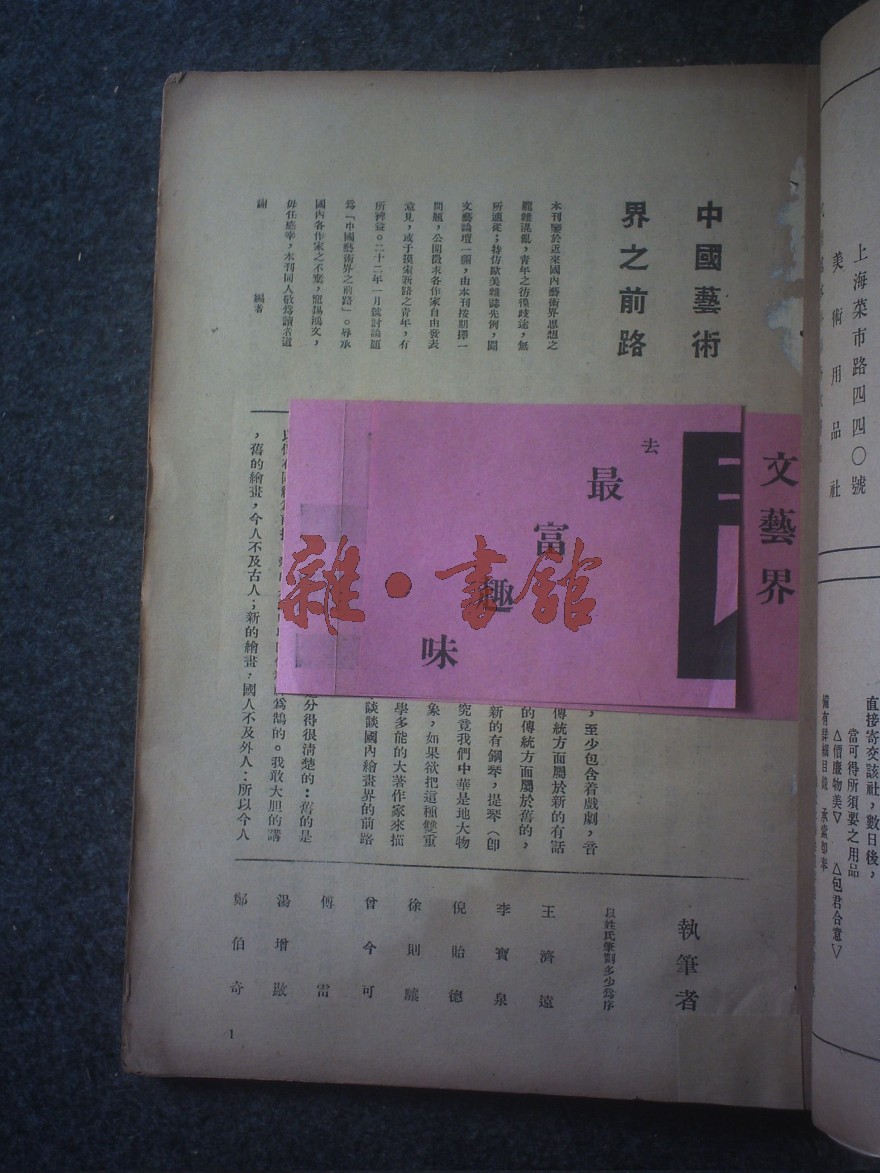 上海菜市路四四〇號
美術用品社
直接寄交該社，數日後，
當可得所須要之用品
△價廉物美▽ △包君合意▽
中國藝術
界之前路
本刊鑒於近來國內藝術界思想之
龐雜混亂，青年之彷徨歧途，無
所適從；特仿歐美雜誌先例，闢
文藝論壇一欄，由本刊按期擇一
問題，公開徵求各作家自由發表
意見，或于摸索新路之青年，有
所裨益。二十二年一月號討論題
爲「中國藝術界之前路」。辱承
國內各作家之不棄，寵錫鴻文，
毋任感幸，本刊同人敬爲讀者道
謝 編者
文藝界
去
最
富
趣
味
雜·書館
，至少包含着戲劇，音
傳統方面屬於新的有話
的傳統方面屬於舊的，
新的有鋼琴，提琴（卽
究竟我們中華是地大物
象，如果欲把這種雙重
學多能的大著作家來描
談談國內繪畫界的前路
分得很清楚的：舊的是
爲鵠的。我敢大胆的講
，舊的繪畫，今人不及古人；新的繪畫，國人不及外人：所以今人
執筆者
以姓氏筆劃多少爲序
王濟遠
李寶泉
倪貽德
徐則驤
曾今可
傅雷
湯增敭
鄭伯奇
1